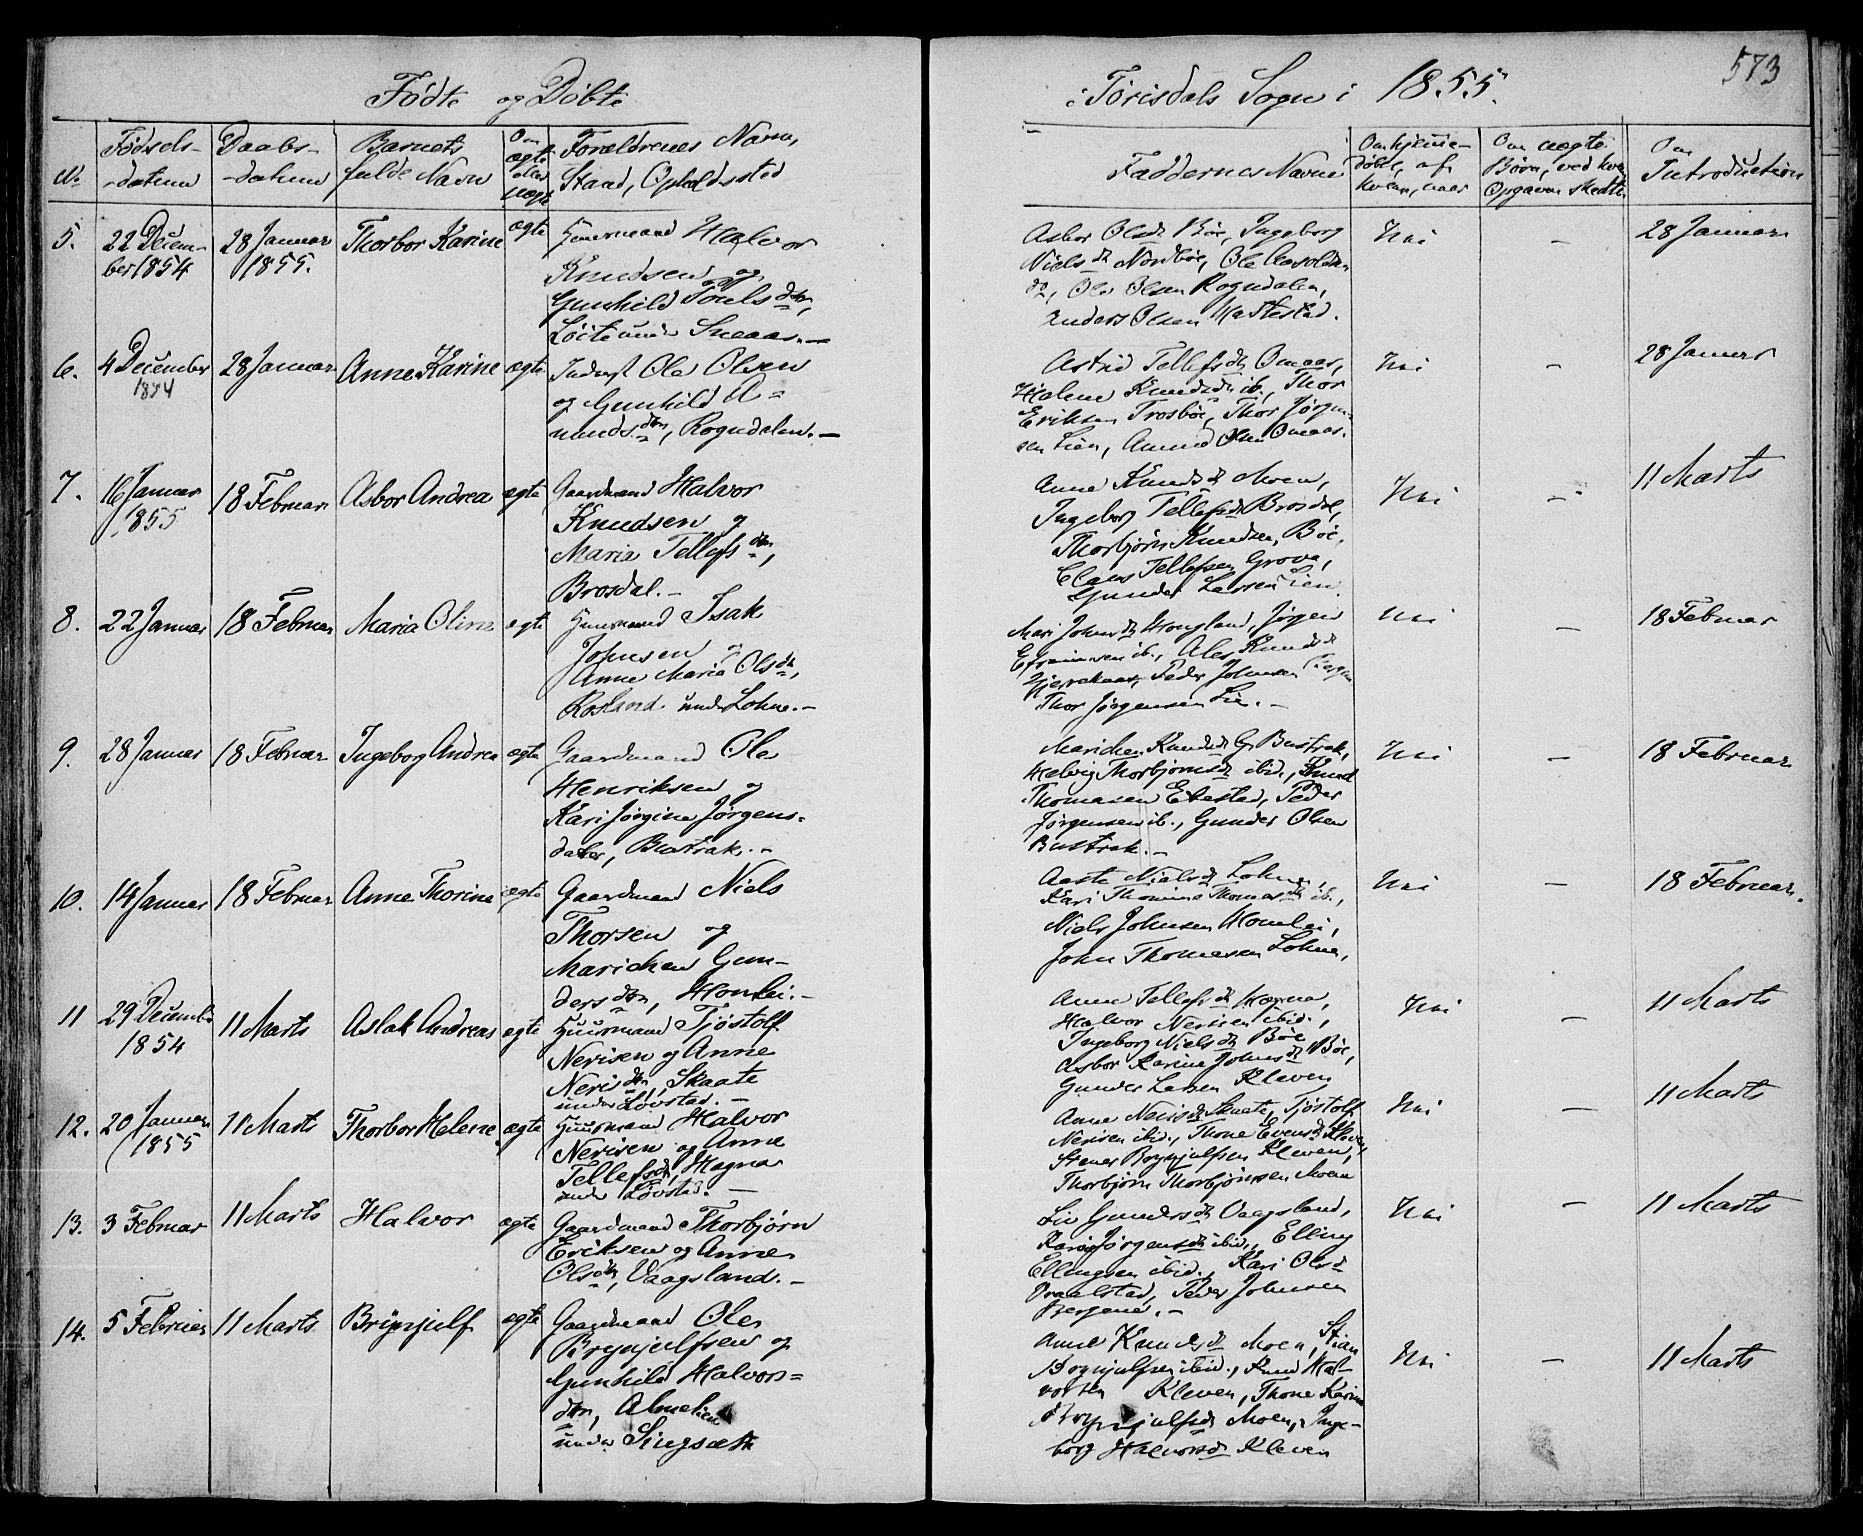 573
Fødte og Døbte i Torisdals Sogn i 1855.
No
Fødsels-
-datum
Daabs-
-datum
Barnets
fulde Navn
Om
ægte
eller
uægte
Forældrenes Navn,
Stand, Opholdssted
Faddernes Navne
Om hjemme-
døbte, af
hvem, naar
Om uægte
Børn, ved hvem
Opgaven skedte
Om
Introduction
5.
22 Decem-
ber 1854
28 Januar
1855.
Thorbor Karine
ægte
Huusmand Halvor
Knudsen og
Gunhild
Løite under Sneaas.-
Asbor Olsdr Bøe, Ingeborg
Nielsdr Nordbøe, Ole
do, Ole Olsen Rogndalen,
Anders Olsen
Nei
-
28 Januar
6.
4 December
1854
28 Januar
Anne Karine
ægte
Inderst Ole Olsen
og Gunhild A=
mundsdtr, Rogndalen.-
Astrid Tellefsdr Omaas,
Halene Knudsdr ib., Thor
Eriksen Trosbøe, Thor Jørgen-
sen Lien, Amund Olsen Omaas.
Nei
-
28 Januar
7.
16 Januar
1855
18 Februar
Asbor Andrea
ægte
Gaardmand Halvor
Knudsen og
Maria Tellefsdtr,
Brosdal.-
Anne Knudsdr Moen,
Ingeborg Tellefsdr Brosdal,
Thorbjørn Knudsen Bøe,
Claus Tellefsen Grova,
Gunder Larsen Lien.
Nei
-
11 Marts
8.
22 Januar
18 Februar
Maria Oline
ægte
Huusmand Isak
Johnsen og
Anne Maria Olsdtr,
Rosland under Lohne.-
Mari Johnsdr Hougland, Jørgen
Efraimsen ib., Knudsdr
Peder Johnsen
Thor Jørgensen Lie.-
Nei
-
18 Februar
9.
28 Januar
18 Februar
Ingeborg Andrea
ægte
Gaardmand Ole
Henriksen og
Kari Jørgine Jørgens=
datter, Bustrak.-
Marichen Knudsdr Bustrak,
Helvig Thorbjørnsdr ibid., Knud
Thomasen Ekestad, Peder
Jørgensen ib., Gunder Olsen
Bustrak.-
Nei
-
18 Februar
10.
14 Januar
18 Februar
Anne Thorine
ægte
Gaardmand Niels
Thorsen og
Marichen Gun-
dersdtr, Homlei.-
Aaste Nielsdr Lohne,
Kari Thomine Thomasdr ib.,
Niels Johnsen Homlei,
John Thomesen Lohne,
Nei
-
18 Februar.
11
29 Decembr
1854
11 Marts
Aslak Andreas
ægte
Huusmand Tjøstolf
Nerisen og Anne
Nerisdtr, Skaate
under Løvstad.-
Anne Tellefsdr Hagna,
Halvor Nerisen ibid.,
Ingeborg Nielsdr Bøe
Asbor Karine Johnsdr Bøe,
Gunder Larsen Kleven
Nei
-
11 Marts
12.
20 Januar
1855
11 Marts
Thorbor Helene
ægte
Huusmand Halvor
Nerisen og Anne
Tellefsdtr, Hagna
under Løvstad.-
Anne Nerisdr Skaate, Tjøstolf
Nerisen ibid., Thone Evensdr Kleven,
Stener Brynjulfsen Kleven,
Thorbjørn Thorbjørnsen Moen
Nei
-
11 Marts
13.
3 Februar
11 Marts
Halvor
ægte
Gaardmand Thorbjørn
Eriksen og Anne
Olsdtr, Vaagsland.-
Liv Gundersdr Vaagsland,
Karen Jørgensdr ibid., Elling
Ellingsen ibid., Kari Olsd
Draalstad, Peder Johnsen
Bergene.-
Nei
-
11 Marts
14.
5 Februar
11 Marts
Brynjulf
ægte
Gaardmand Ole
Brynjulfsen og
Gunhild Halvors=
dtr,
under Singsaas
Anne Knudsdr Moen, Stian
Brynjulfsen ibid., Knud Hal-
vorsen Kleven, Thone Karine
Brynjulfsdr Moen, Inge-
borg Halvorsdr Kleven
Nei
-
11 Marts